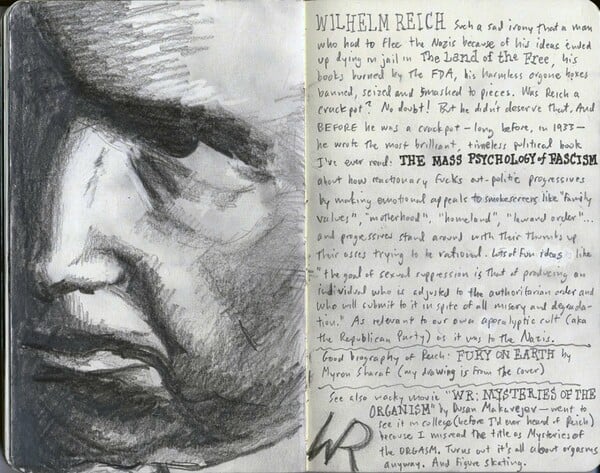 WILHELM REICH Such a sad irony that a man
who had to flee the Nazis because of his ideas ended
up dying in jail in The Land of the Free, his
books burned by the FDA, his harmless orgone boxes
banned, seized and smashed to pieces. Was Reich a
crackpot? No doubt! But he didn't deserve that. And
BEFORE he was a crackpot – long before, in 1933 –
he wrote the most brilliant, timeless political book
I've ever read: THE MASS PSYCHOLOGY of FASCISM
about how reactionary fucks out-politic progressives
by making emotional appeals to smokescreens like "family
values", "motherhood", "homeland", "law and order"...
and progressives stand around with their thumbs up
their asses trying to be rational. Lots of fun ideas like
"the goal of sexual suppression is that of producing an
individual who is adjusted to the authoritarian order and
who will submit to it in spite of all misery and degrada-
tion." As relevant to our own apocalyptic cult (aka
the Republican Party) as it was to the Nazis.
Good biography of Reich: FURY ON EARTH by
Myron Sharaf (my drawing is from the cover)
See also wacky movie "WR: MYSTERIES OF THE
ORGANISM" by Dusan Makavejev – went to
see it in college (before I'd ever heard of Reich)
because I misread the title as Mysteries of
the ORGASM. Turns out it's all about orgasms
anyway. And figure skating.
WR